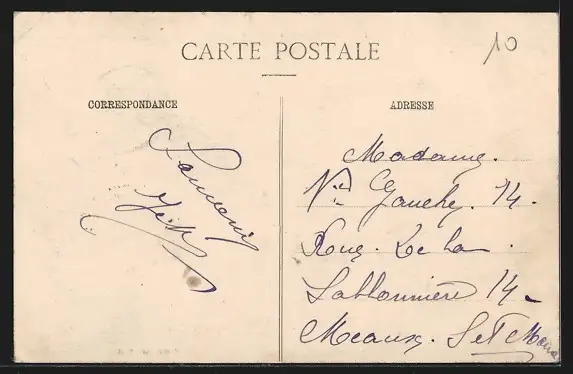 10
CARTE POSTALE
CORRESPONDANCE
ADRESSE
Souvenir
Madame.
Vve Gauchy. 14.
Rue. De la.
Sablonnière 14 -
Meaux. S et Marne